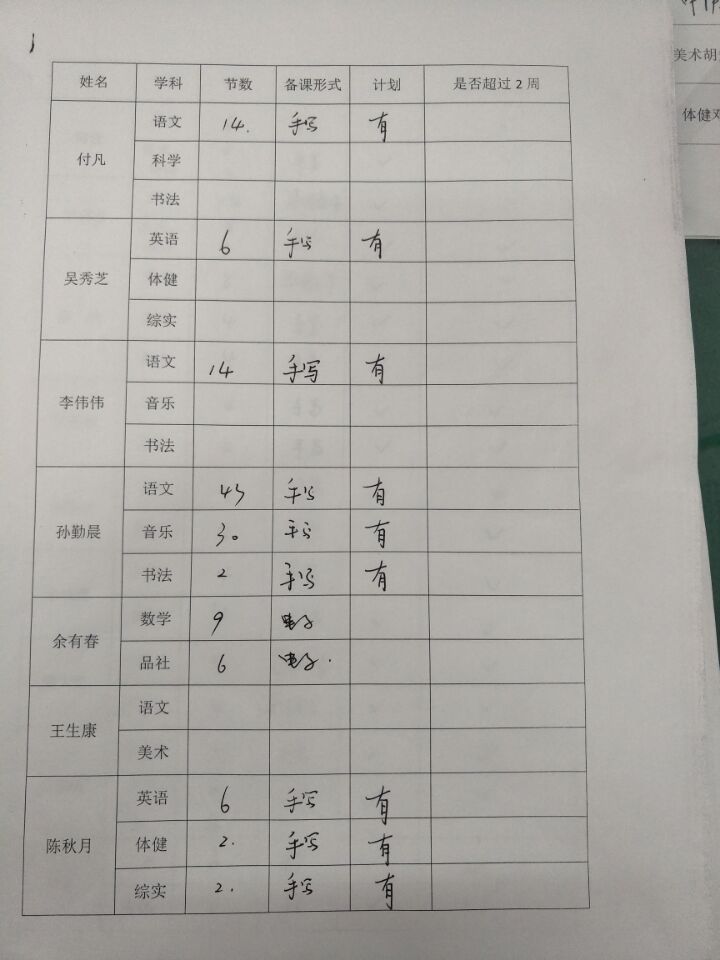 姓名 学科 节数 备课形式 计划 是否超过2周
付凡 语文 14. 手写 有
科学
书法
吴秀芝 英语 6 手写 有
体健
综实
李伟伟 语文 14 手写 有
音乐
书法
孙勤晨 语文 43 手写 有
音乐 30 手写 有
书法 2 手写 有
余有春 数学 9 电子
品社 6 电子.
王生康 语文
美术
陈秋月 英语 6 手写 有
体健 2. 手写 有
综实 2. 手写 有
美术胡
体健